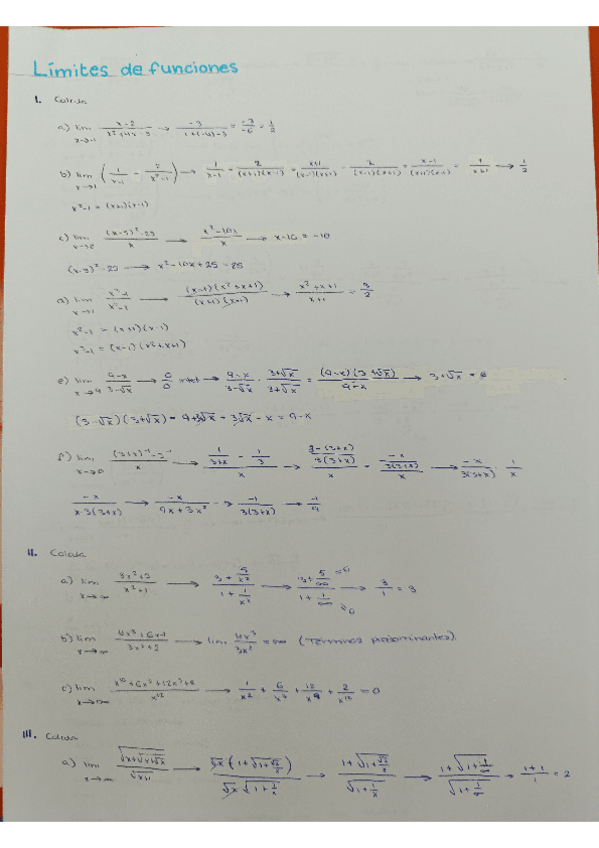 Límites de funciones
I. Calcula
a) lim x→-1 (x-2)/(x²+4x-3) → -3/(1+(-4)-3) = -3/-6 = 1/2
b) lim x→1 (1/(x-1) - 2/(x²-1)) → 1/(x-1) - 2/((x+1)(x-1)) → (x+1)/((x-1)(x+1)) - 2/((x-1)(x+1)) = (x-1)/((x+1)(x-1)) = 1/(x+1) → 1/2
x²-1 = (x+1)(x-1)
c) lim x→0 ((x-5)²-25)/x → (x²-10x)/x → x-10 = -10
(x-5)²-25 → x²-10x+25-25
d) lim x→1 (x³-1)/(x²-1) → ((x-1)(x²+x+1))/((x-1)(x+1)) → (x²+x+1)/(x+1) = 3/2
x²-1 = (x+1)(x-1)
x³-1 = (x-1)(x²+x+1)
e) lim x→9 (9-x)/(3-√x) → 0/0 indet → (9-x)/(3-√x) · (3+√x)/(3+√x) = ((9-x)(3+√x))/(9-x) → 3+√x = 6
(3-√x)(3+√x) = 9+3√x-3√x-x = 9-x
f) lim x→0 ((3+x)⁻¹-3⁻¹)/x → (1/(3+x) - 1/3)/x → ((3-(3+x))/(3(3+x)))/x = (-x/(3(3+x)))/x → -x/(3(3+x)) · 1/x
-x/(x·3(3+x)) → -x/(9x+3x²) → -1/(3(3+x)) → -1/9
II. Calcula
a) lim x→∞ (3x²+5)/(x²+1) → (3+5/x²)/(1+1/x²) → (3+5/∞)/(1+1/∞) =0 =0 → 3/1 = 3
b) lim x→∞ (4x³+6x-1)/(3x²+2) → lim 4x³/3x² = ∞ (Términos predominantes).
c) lim x→∞ (x¹⁰+6x⁵+12x³+2)/x¹² → 1/x² + 6/x⁷ + 12/x⁹ + 2/x¹² = 0
III. Calcula
a) lim x→∞ √(x+√(x+√x))/√(x+1)